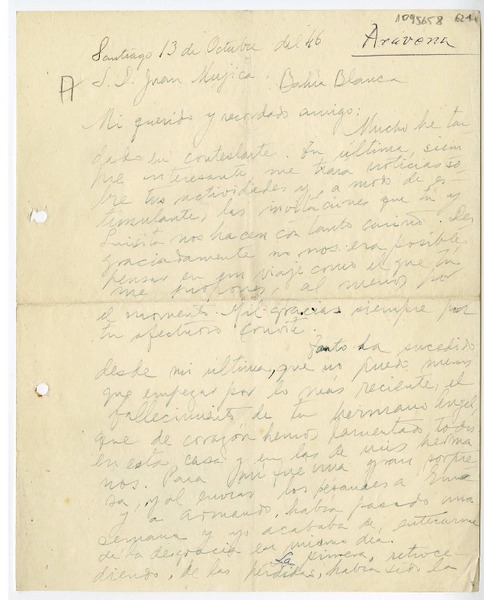 1095658 621
Aravena
Santiago 13 de Octubre del 46
S. D. Juan Mujica. Bahía Blanca
A
Mi querido y recordado amigo:
Mucho he tar
dado en contestarte. Tu última, siem
pre interesante me traía noticias so
bre tus actividades y, a modo de es-
timulante, las invitaciones que tú y
Luisita nos hacen con tanto cariño. Des
graciadamente no nos era posible
pensar en un viaje como el que tú
me propones, al menos por
el momento. Mil gracias siempre por
tu afectuoso convite.
Tanto ha sucedido
desde mi última, que no puedo menos
que empezar por lo más reciente, el
fallecimiento de tu hermano Angel,
que de corazón hemos lamentado todos
en esta casa y en las de mis herma
nos. Para mí fue una gran sorpre
sa, y al enviar los pésames a
y a Armando, había pasado una
semana y yo acababa de enterarme
de la desgracia ese mismo día.
La primera, retroce
diendo, de las pérdidas, había sido la